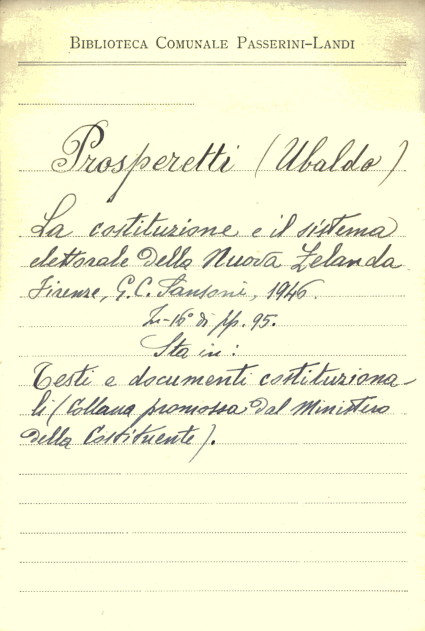 BIBLIOTECA COMUNALE PASSERINI-LANDI
Prosperetti (Ubaldo)
La costituzione e il sistema
elettorale della Nuova Zelanda
Firenze, G.C. Sansoni, 1946.
In-16° di pp. 95.
Sta in:
Testi e documenti costituziona-
li (Collana promossa dal Ministero
della Costituente).